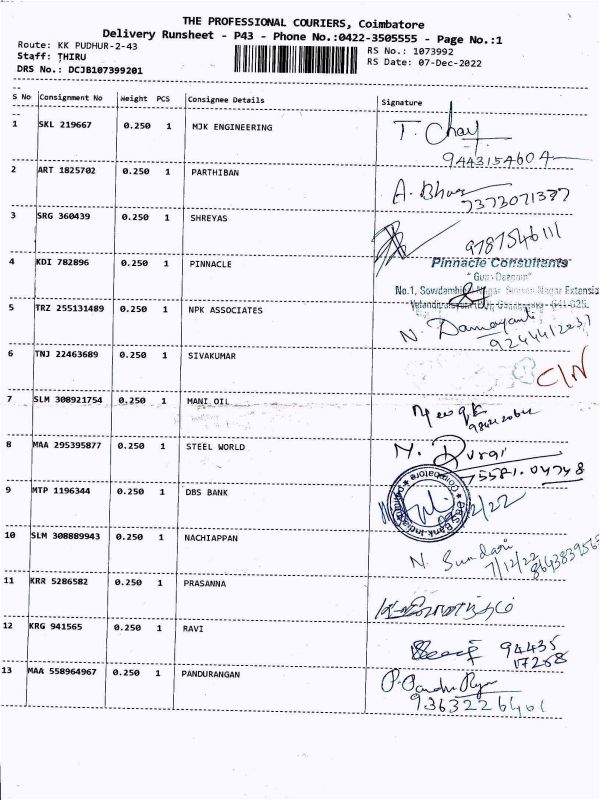 THE PROFESSIONAL COURIERS, Coimbatore
Delivery Runsheet - P43 - Phone No.:0422-3505555 - Page No.:1
Route: KK PUDHUR-2-43
RS No.: 1073992
Staff: THIRU
RS Date: 07-Dec-2022
DRS No.: DCJB107399201
S No Consignment No Weight PCS Consignee Details Signature
1 SKL 219667 0.250 1 MJK ENGINEERING T. Chay
9443154604
2 ART 1825702 0.250 1 PARTHIBAN A. Bhuv
7373071377
3 SRG 360439 0.250 1 SHREYAS
9787546111
4 KDI 782896 0.250 1 PINNACLE Pinnacle Consultants
No.1, Sowdambiga Nagar Nagar Extensio
5 TRZ 255131489 0.250 1 NPK ASSOCIATES N. Damayanti
6 TNJ 22463689 0.250 1 SIVAKUMAR C/N
7 SLM 308921754 0.250 1 MANI OIL
8 MAA 295395877 0.250 1 STEEL WORLD N. Durai
75581.04748
9 MTP 1196344 0.250 1 DBS BANK DBS Bank India Coimbatore
/12/22
10 SLM 308889943 0.250 1 NACHIAPPAN N. Sundari
7/12/22
11 KRR 5286582 0.250 1 PRASANNA
12 KRG 941565 0.250 1 RAVI 94435
17268
13 MAA 558964967 0.250 1 PANDURANGAN P. Pandu
9363226461